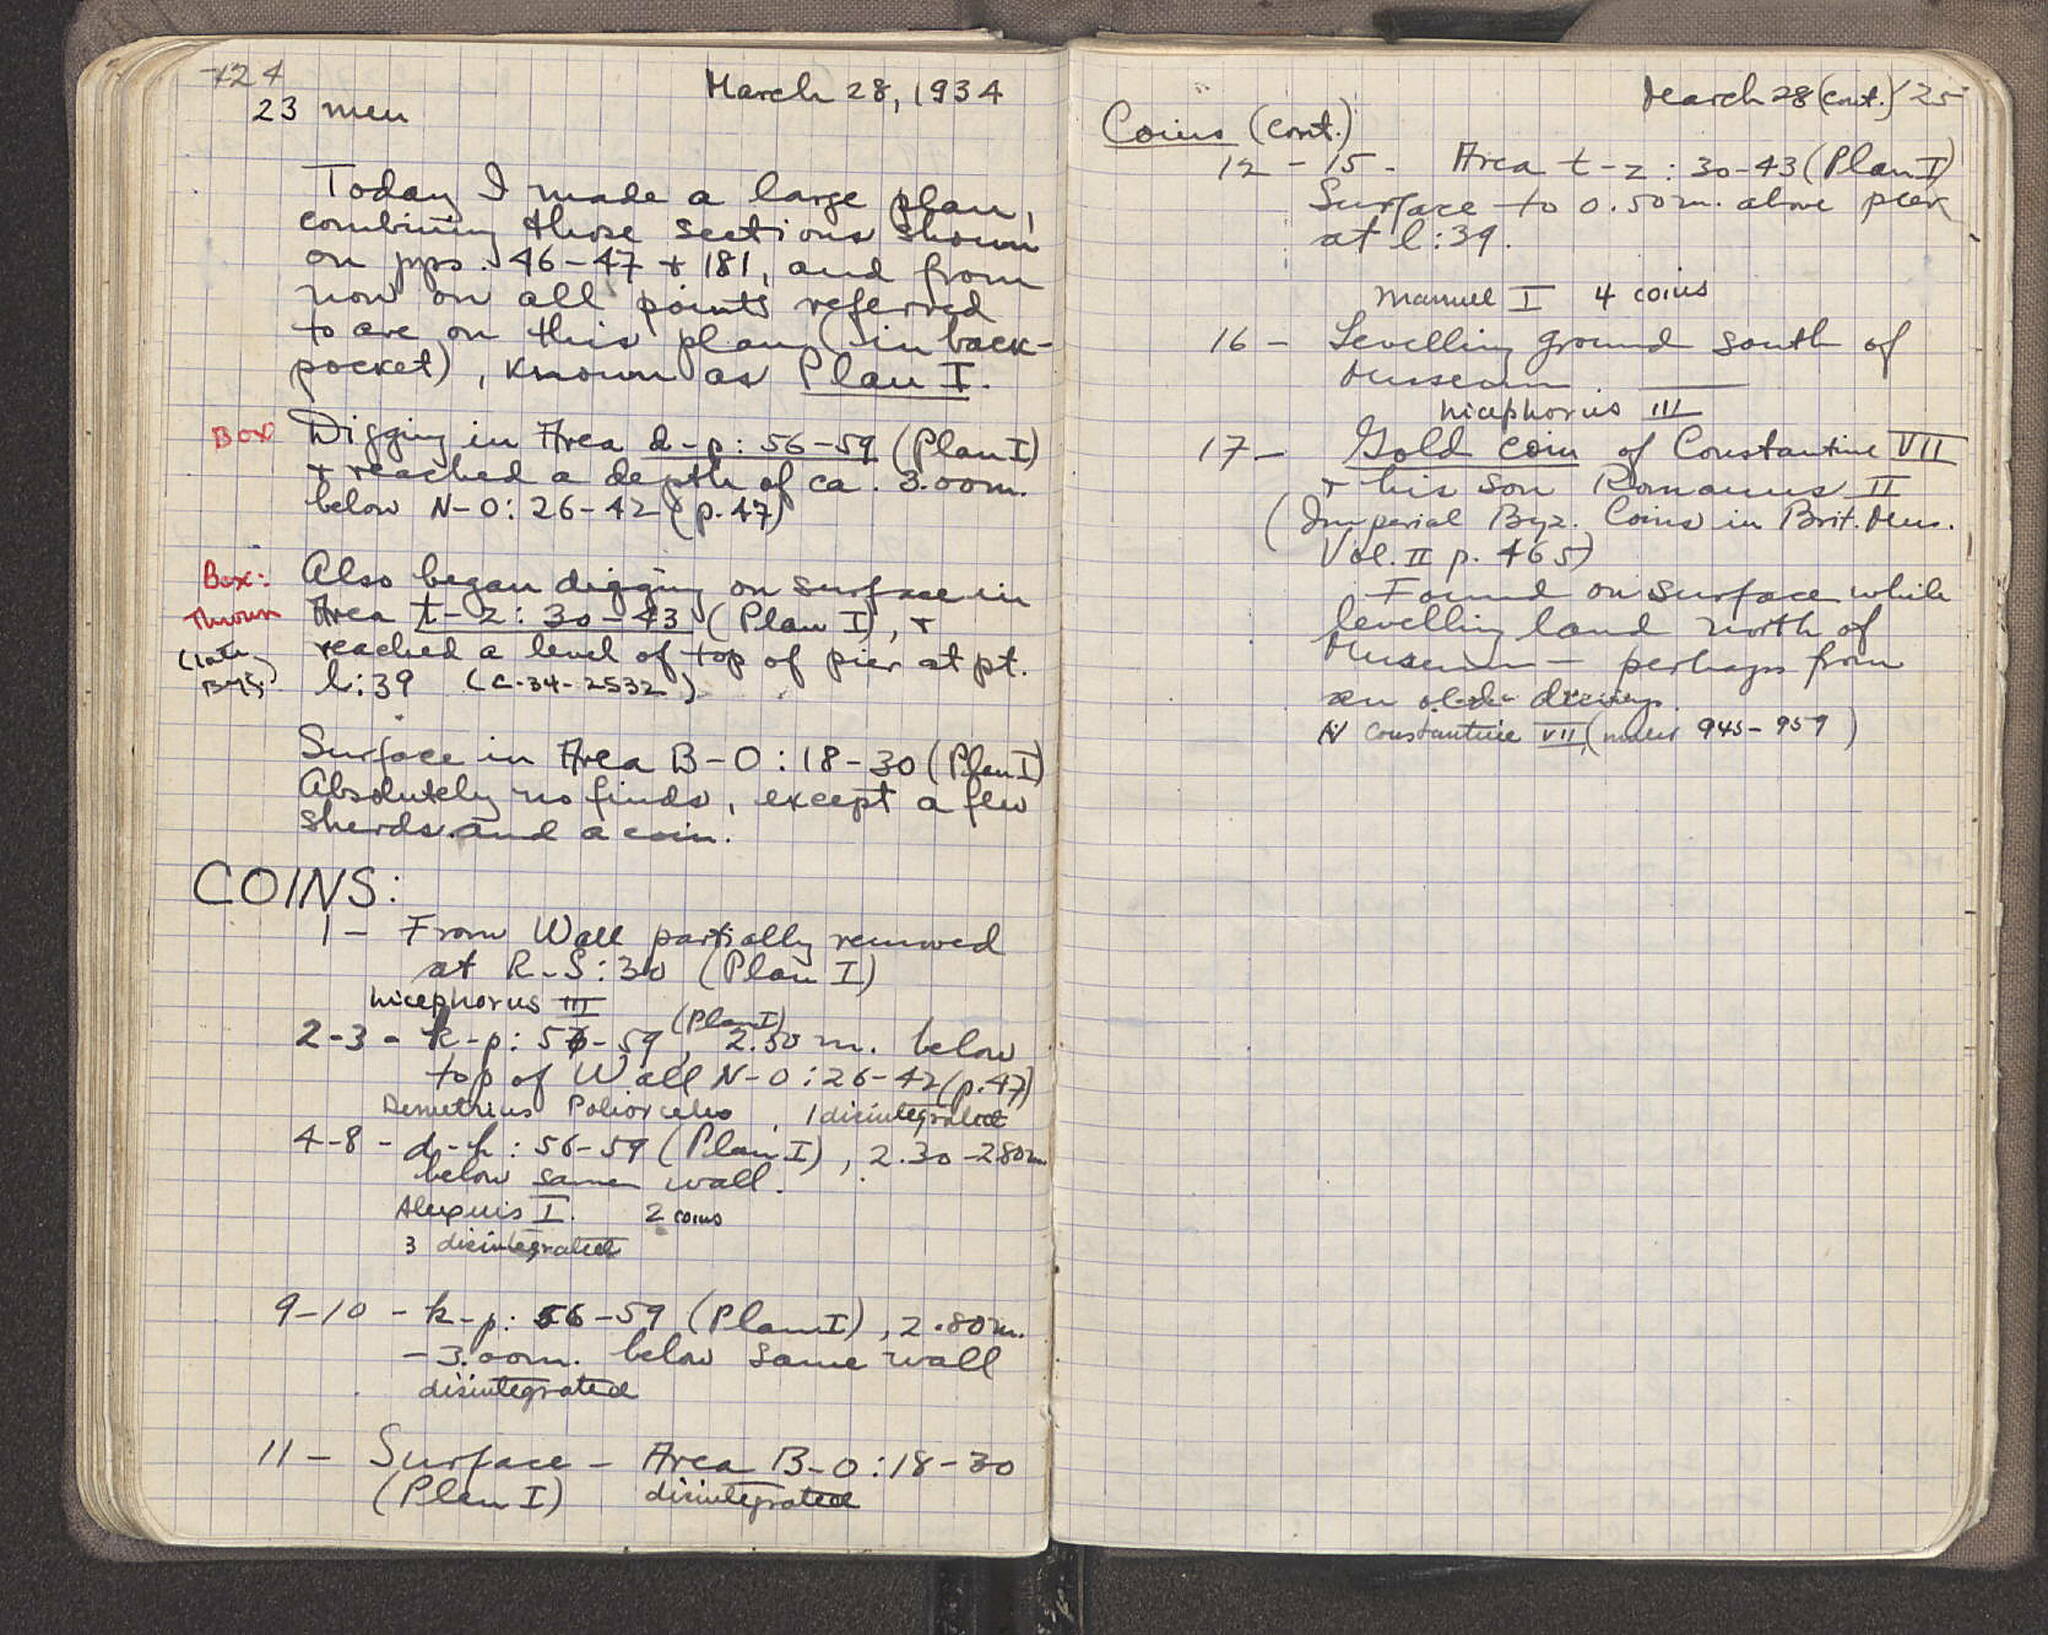 124
March 28, 1934
23 men
Today I made a large plan,
combining those sections shown
on pps. 46-47 + 181, and from
now on all points referred
to are on this plan (in back-
pocket), known as Plan I.
Box
Digging in Area d-p: 56-59 (Plan I)
+ reached a depth of ca. 3.00m.
below N-O: 26-42 (p. 47)
Box:
Also began digging on surface in
Thrown
Area t-z: 30-43 (Plan I), +
(late
reached a level of top of pier at pt.
Byz.)
l:39 (C-34-2532)
Surface in Area B-O: 18-30 (Plan I)
Absolutely no finds, except a few
sherds and a coin.
COINS:
1 - From Wall partially removed
at R-S: 30 (Plan I)
Nicephorus III
(Plan I)
2-3 - k-p: 56-59, 2.50 m. below
top of Wall N-O: 26-42 (p. 47)
Demetrius Poliorcetes, 1 disintegrated
4-8 - d-k: 56-59 (Plan I), 2.30-2.80m
below same wall.
Alexius I. 2 coins
3 disintegrated
9-10 - k-p: 56-59 (Plan I), 2.80m.
- 3.00m. below same wall
disintegrated
11 - Surface - Area B-O: 18-30
(Plan I) disintegrated
March 28 (cont.) 125
Coins (cont.)
12 - 15 - Area t-z: 30-43 (Plan I)
Surface to 0.50m. above pier
at l:39.
Manuel I 4 coins
16 - Levelling ground south of
Museum.
Nicephorus III
17 - Gold coin of Constantine VII
+ his son Romanus II
(Imperial Byz. Coins in Brit. Mus.
Vol. II p. 465)
Found on surface while
levelling land north of
Museum - perhaps from
an old
Constantine VII ( 945-959)